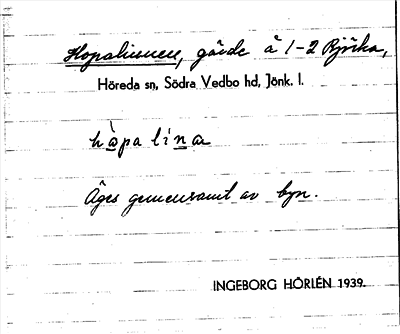 Hopalinnen, gärde å 1-2 Björka,
Höreda sn, Södra Vedbo hd, Jönk. l.
hàpa lína
Äges gemensamt av byn.
INGEBORG HÖRLÉN 1939.